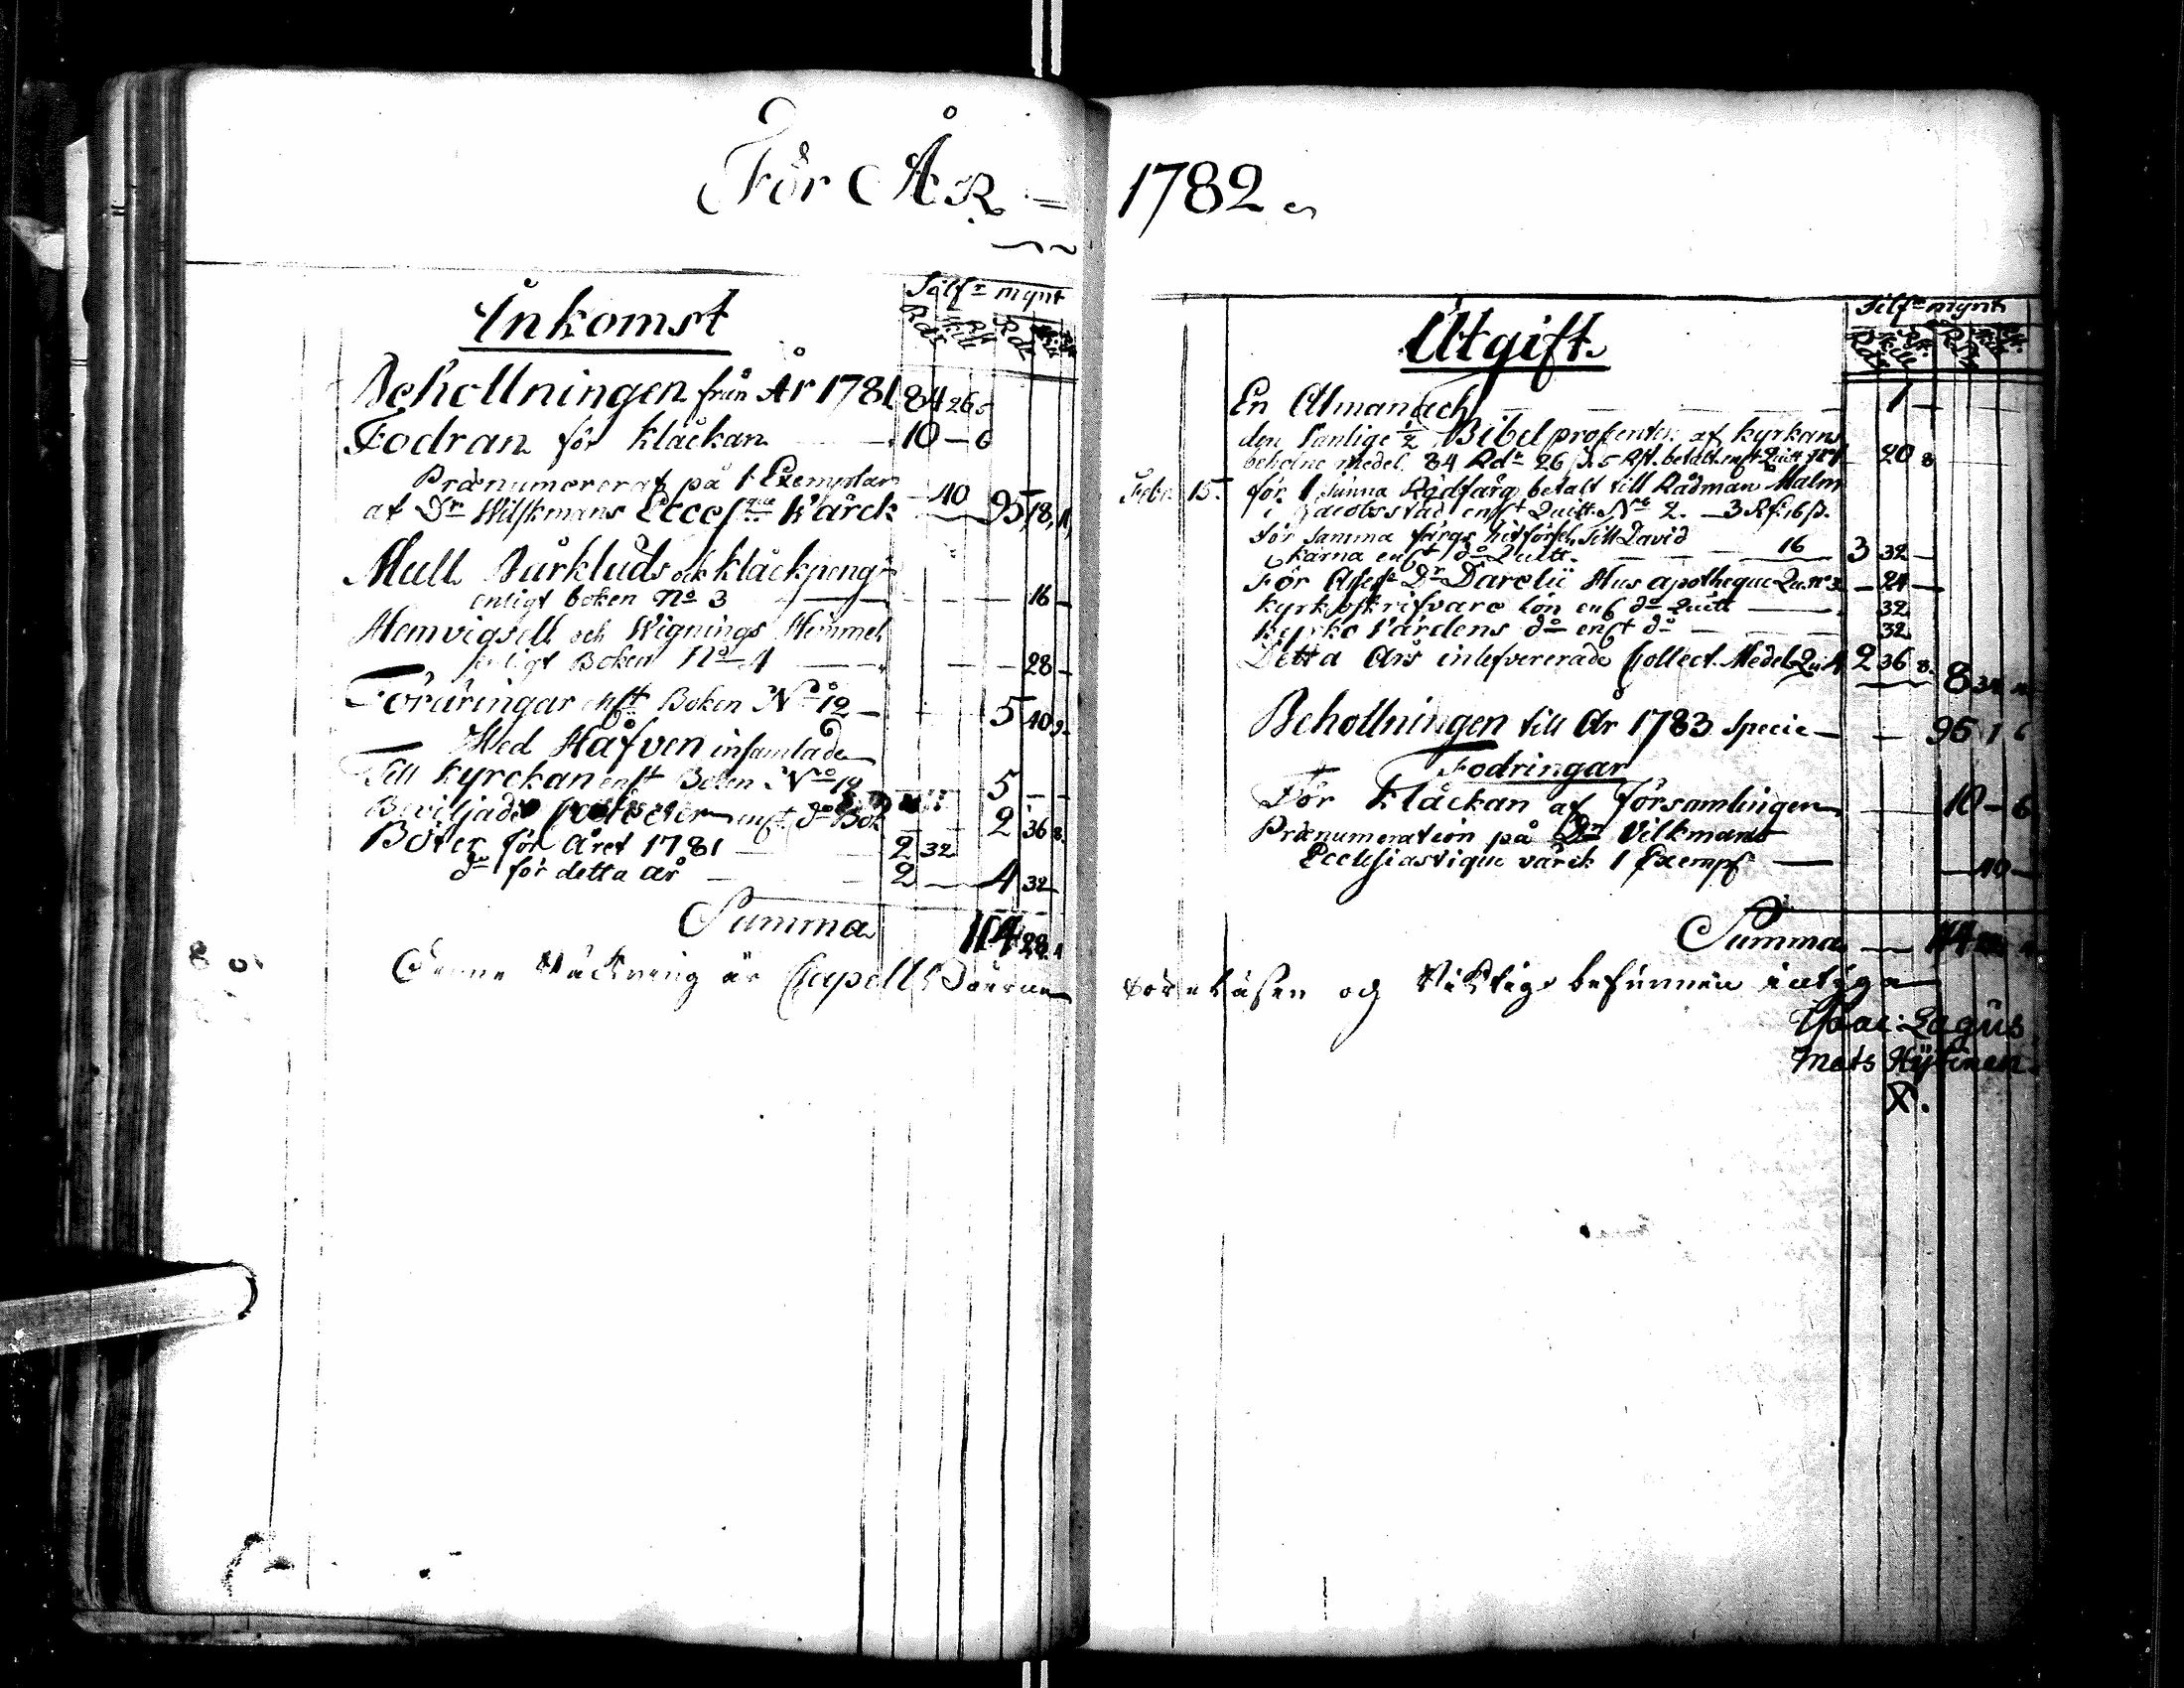 För ÅR = 1782
Inkomst
Silfr mynt
Behollningen från År 1781 84 26 5
Fodran för klåckan 10 — 6
Prænumererat på 1 Exemplar
af Dr Wilskmans Eccles Wärck 40 95 18 11
Mull Bårkluds och klåckpeng
enligt boken No 3 16 —
Hemvigsell och Wignings Himmel
enligt Boken No 4 28 —
Föräringar enligt Boken No 12 5 40 9
Med Håfven insamlade
Till kyrckan enligt Boken No 12 5 — —
Beviljade enligt do Bok 2 36 8
Böter för Året 1781 2 32
do för detta år 2 — 4 32
Summa 114 28 4
Denne Räckning är Capell Boerne
Utgift
Silfr mynt
En Almanach 1 —
den vanlige 1/2 Bibel procenten af kyrkans
beholne medel 84 Rdr 26 s. 5 Rst. betalt enligt Quitt No 1 20 8
Febr. 15. för 1 tunna Rödfärg betalt till Rådman Malm
i Jacobsstad enligt Quitt. No 2. — 3 R 16 s.
För samma färgs hitförsel till David
Kärna enligt do Quitt. 16 3 32 —
För Assess Dr Darelii Hus apotheque Qu. No 3 — 24 —
kyrkoskrifvare lön enl do Quitt 32
kyrko Värdens do enligt do 32
Detta Års inlefvererade Collect. Medel Qu. 4 2 36 8 8 34
Behollningen till År 1783 Specie 95 1 6
Fodringar
För Klåckan af Församlingen 10 — 6
Prænumeration på Dr Vilkmans
Ecclesiastique värck 1 Exempl — 40 —
Summa — 114
föreläsen og Riktig befunnen intyga
Isaac Lagus
Mats Hytinen
X.